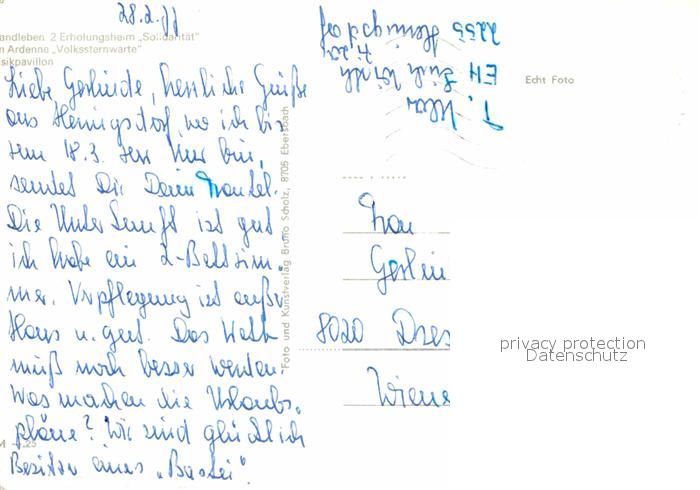 28.2.77
andleben 2 Erholungsheim „Solidarität"
n Ardenne „Volkssternwarte"
sikpavillon
Liebe Gerlinde, herzliche Grüße
aus Heringsdorf, wo ich bis
zum 18.3. zur Kur bin,
sendet Dir Deine Trautel.
Die Unterkunft ist gut
ich habe ein 2-Bettzim.
mer. Verpflegung ist außer
Haus u. gut. Das Wetter
muß noch besser werden.
Was machen die Urlaubs-
pläne? Wir sind glücklich
Besitzer eines „Bastei".
M -.25
Foto und Kunstverlag Bruno Scholz, 8705 Ebersbach
T.
EH
2255 Heringsdorf
Echt Foto
Frau
Gerlin
8020 Dres
Wiene
privacy protection
Datenschutz